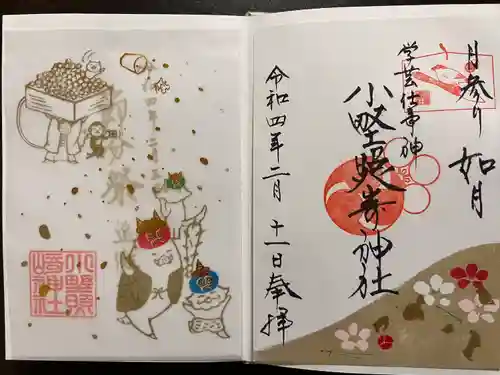 月参り 如月
学芸仕事神
小野照崎神社
令和四年二月十一日奉拝
小野照
崎神社